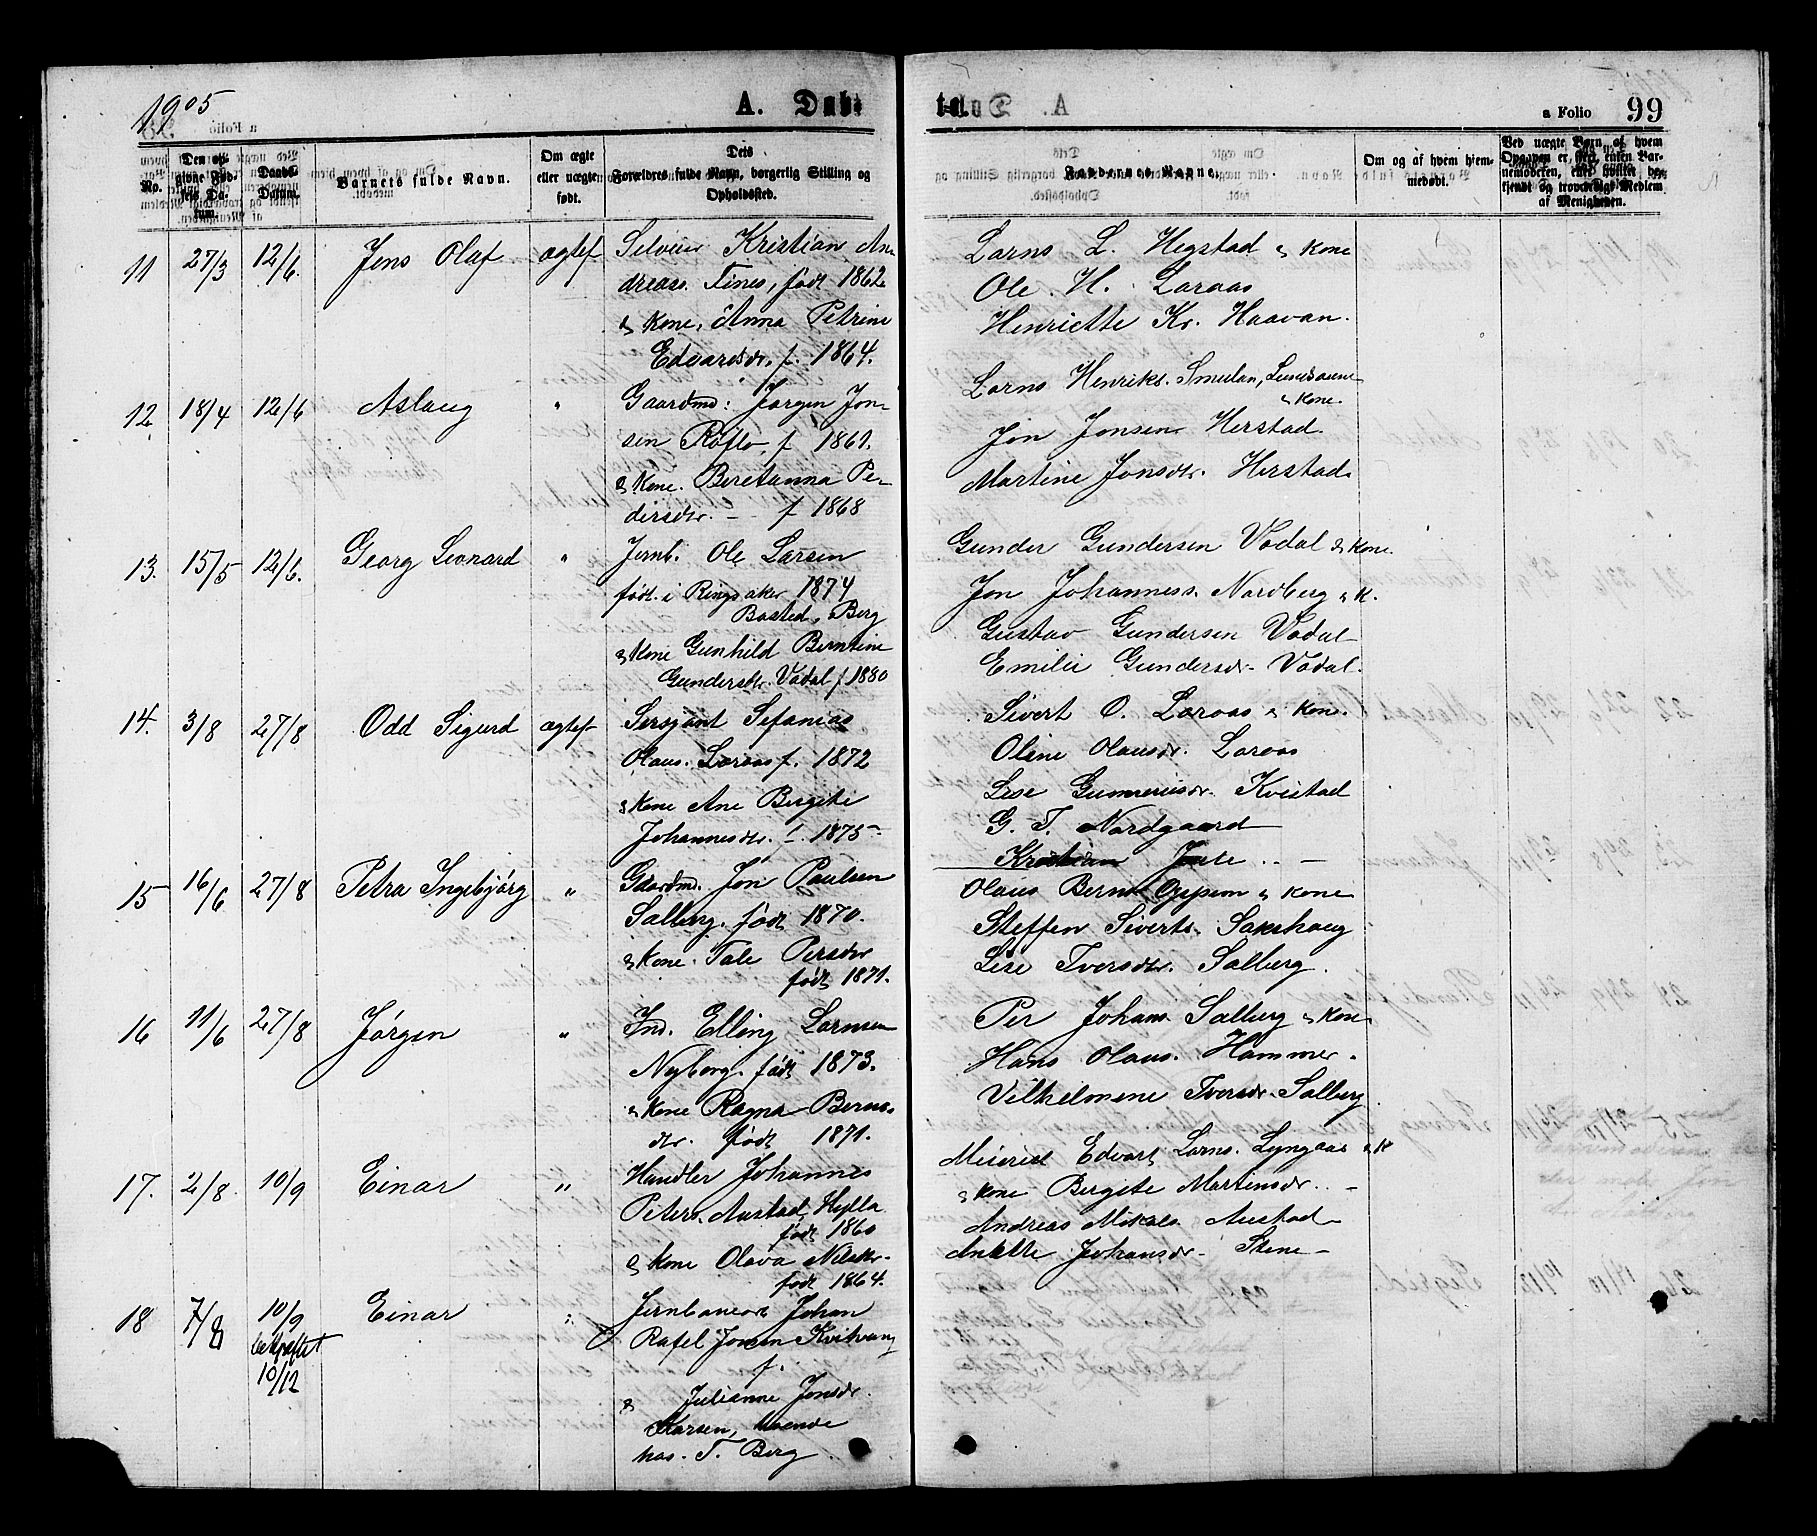 1905
A. Døb-
te.
a Folio 99
No.
Den opgivne Fødsels Datum.
Daabs Datum.
Barnets fulde Navn.
Om ægte eller uægte født.
Dets Forældres fulde Navn, borgerlig Stilling og Opholdssted.
Faddernes Navne.
Om og af hvem hjemmedøbt.
Ved uægte Børn, af hvem Opgaven er skeet, enten Barnemoderen, eller hvilket bekjendt og troværdigt Medlem af Menigheden.
11 27/3 12/6. Jens Olaf ægtef
Kristian An-
dreass. Tines, født 1862
& Kone, Anna Petrine
Edvardsdr. f. 1864.
Larns L. Hegstad & Kone
Ole. H. Laraas
Henriette Kr. Haavan.
12 18/4 12/6 Aslaug "
Gaardmd: Jørgen Jon-
sen Røflo, f 1861.
& Kone. Beretanna Pe-
dersdtr. - f 1868
Larns Henriks. Smulan,
& Kone.
Jon Jonsen Herstad.
Martine Jonsdtr. Herstad
13. 15/5 12/6. Georg Leonard "
Jernb. Ole Larsen
født i Ringsaker 1874
Bosted, Berg
& Kone Gunhild Berntine
Gundersdtr. Vådal f 1880
Gunder Gundersen Vådal & Kone.
Jon Johanness. Nordberg & K.
Gustav Gundersen Vådal
Emilie Gundersdr. Vådal.
14. 3/8 27/8 Odd Sigurd ægtef
Sersjant Sefanias
Olaus. Laraas f. 1872
& Kone Ane Bergite
Johannesdtr. f. 1875
Sivert O. Laraas & Kone.
Oline Olausdr. Laraas
Lise Gunneriusdr. Kvistad
G. T. Nordgaard
15 16/6 27/8 Petra Ingebjørg "
Gaardmd. Jon Paulsen
Salberg. født 1870.
& Kone. Tale Persdtr
født 1871.
Olaus Bernt & Kone
Steffen Siverts. Sakshaug
Lise Iversdtr. Salberg.
16 11/6 27/8 Jørgen "
Ind. Elling Larnsen
Nyborg. født 1873.
& Kone Ragna Bernts-
dtr. født 1871.
Per Johans Salberg & Kone
Hans Olaus. Hammer.
Vilhelmine Iversdr. Salberg
17. 2/8. 10/9 Einar "
Handler Johannes
Peters. Austad, Hylla
født 1860
& Kone Olava Nilsdtr.
født 1864.
Meieriet Edvart Larns. Lyngaas & K
& Kone Bergite Martinsdr. -
Andreas Mikals. Austad
Anette Johansdr. Stene
18 7/8 10/9 Einar "
bekræftet
10/12
Jernbanearb Johan
Rafel Jonsen Kvitvang
f.
& Julianne Jonsdr.
Karsen, boende
hos. T. Berg